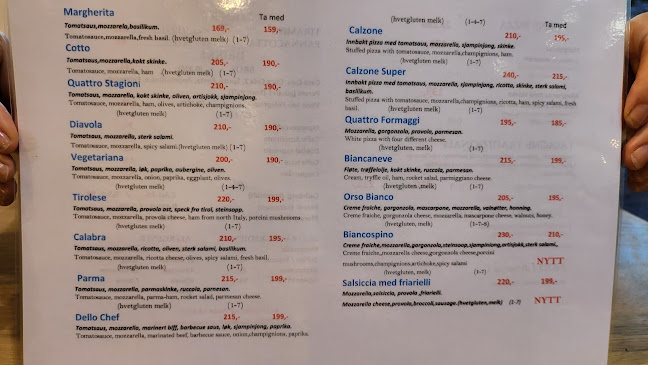 Ta med
Margherita
Tomatsaus,mozzarela,basilikum. 169,- 159,-
Tomatsauce,mozzarella,fresh basil. (hvetgluten melk) (1-7)
Cotto
Tomatsaus,mozzarella,kokt skinke. 205,- 190,-
Tomatosauce, mozzarella, ham .(hvetgluten melk) (1-7)
Quattro Stagioni 210,- 190,-
Tomatsaus, mozzarella, kokt skinke, oliven, artisjokk, sjampinjong.
Tomatosauce, mozzarella, ham, olives, artichoke, champignions.
(hvetgluten melk) (1-7)
Diavola 210,- 190,-
Tomatsaus, mozzarella, sterk salami.
Tomatosauce, mozzarella, spicy salami (hvetgluten melk) (1-7)
Vegetariana 200,- 190,-
Tomatsaus, mozzarella, løk, paprika, aubergine, oliven.
Tomatosauce, mozzarella, onion, paprika, eggplant, olives.
(hvetgluten melk) (1-4-7)
Tirolese 220,- 199,-
Tomatsaus, mozzarella, provola ost, speck fra tirol, steinsopp.
Tomatosauce, mozzarella, provola cheese, ham from north Italy, porcini mushrooms.
(hvetgluten melk) (1-7)
Calabra 210,- 195,-
Tomatsaus, mozzarella, ricotta, oliven, sterk salami, basilikum.
Tomatosauce, mozzarella, ricotta cheese, olives, spicy salami, fresh basil.
(hvetgluten melk) (1-7)
Parma 215,- 199,-
Tomatsaus, mozzarella, parmaskinke, ruccola, parmesan.
Tomatosauce, mozzarella, parma-ham, rocket salad, parmesan cheese.
(hvetgluten melk) (1-7)
Dello Chef 215,- 199,-
Tomatsaus, mozzarella, marinert biff, barbecue saus, løk, sjampinjong, paprika.
Tomatosauce, mozzarella, marinated beef, barbecue sauce, onion,champignions, paprika.
(hvetgluten melk) (1-7)
(hvetgluten melk) (1-4-7)
Ta med
Calzone 210,- 195,-
Innbakt pizza med tomatsaus, mozzarella, sjampinjong, skinke.
Stuffed pizza with tomatosauce, mozzarella, champignions, ham.
(hvetgluten melk) (1-7)
Calzone Super 240,- 215,-
Innbakt pizza med tomatsaus, mozzarella, sjampinjong, ricotta, skinke, sterk salami,
basilikum.
Stuffed pizza with tomatosauce, mozzarella,champignions, ricotta, ham, spicy salami, fresh
basil. (hvetgluten melk) (1-7)
Quattro Formaggi 195,- 185,-
Mozzarella, gorgonzola, provola, parmesan.
White pizza with four different cheese.
(hvetgluten melk) (1-7)
Biancaneve 215,- 199,-
Fløte, trøffelolje, kokt skinke, ruccola, parmesan.
Cream, tryffle oil, ham, rocket salad, parmiggano cheese.
(hvetgluten melk) (1-7)
Orso Bianco 205,- 195,-
Creme fraiche, gorgonzola, mascarpone, mozzarella, valnøtter, honning.
Creme fraiche, gorgonzola cheese, mozzarella, mascarpone cheese, walnuts, honey.
(hvetgluten melk) (1-7-8)
Biancospino 230,- 210,-
Creme fraiche,mozzarella,gorgonzola,steinsopp,sjampinjong,artisjokk,sterk salami,
Creme fraiche,mozzarella,gorgonzola cheese,porcini
mushrooms,champignions,artichoke,spicy salami NYTT
(hvetgluten melk) (1-7)
Salsiccia med friarielli 220,- 199,-
Mozzarella,salsiccia, provola ,friarielli.
Mozzarella cheese,provola,broccoli,sausage.(hvetgluten,melk) (1-7) NYTT